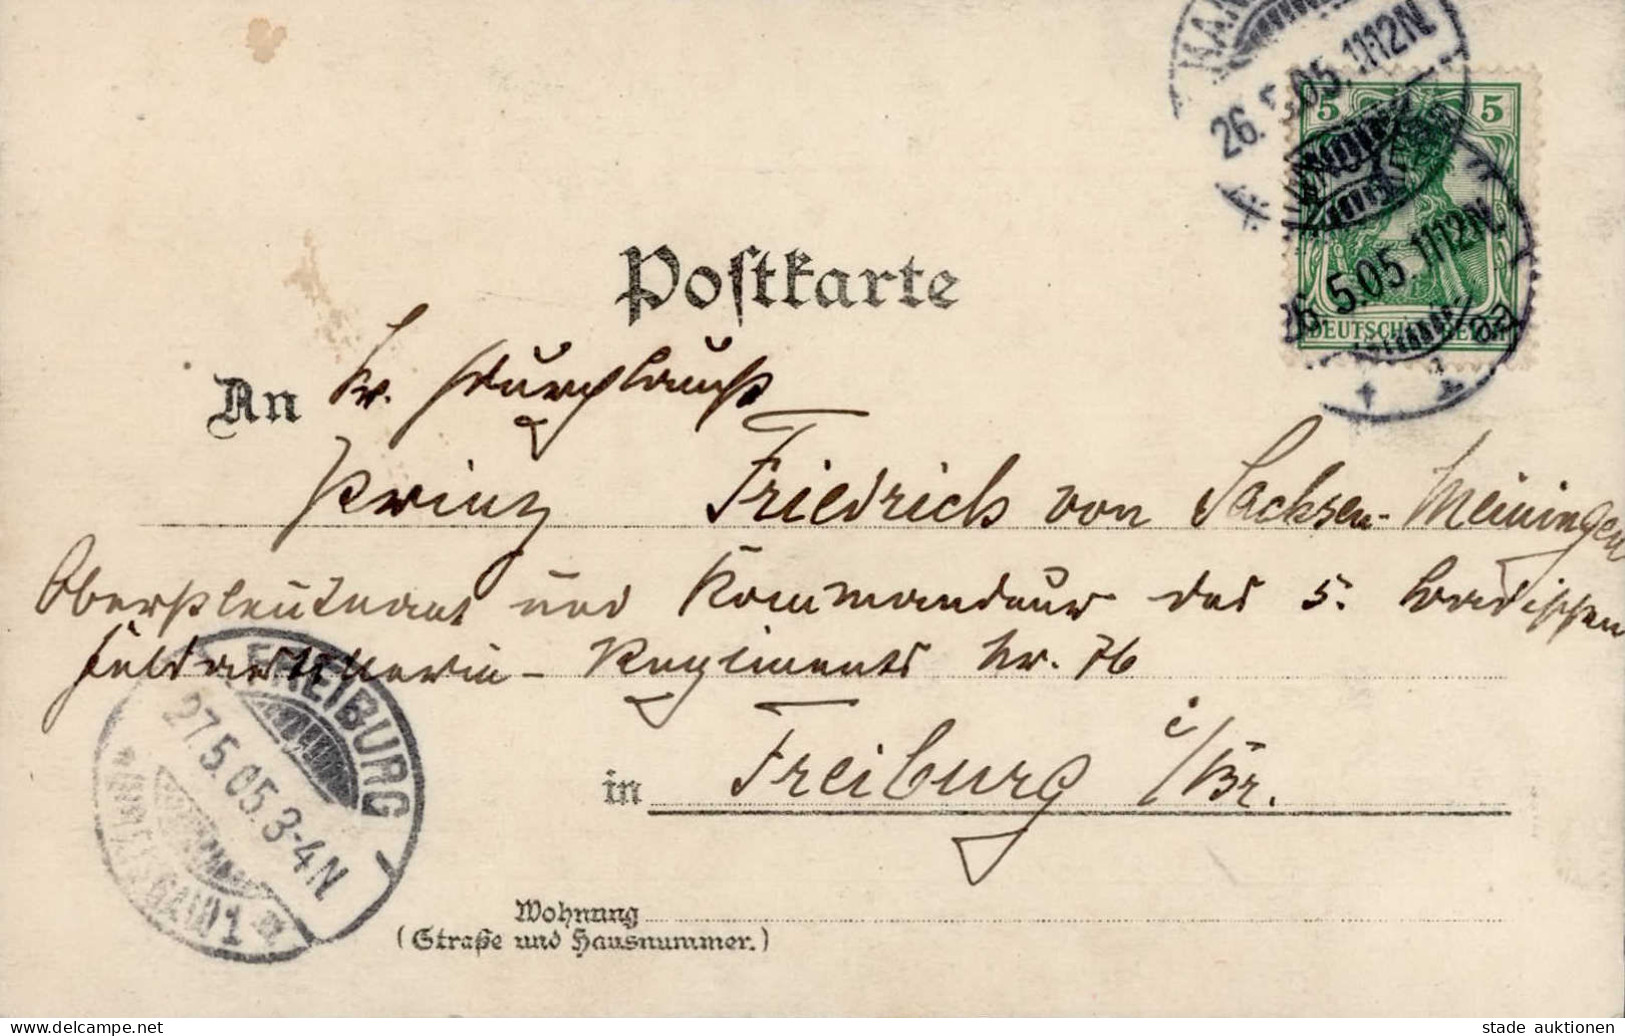 HANNOVER
26.5.05.11-12N.
5 5
HANNOVER
26.5.05.11-12N.
DEUTSCHES REICH
Postkarte
An Sr. Durchlaucht
Prinz Friedrich von Sachsen-Meiningen
Oberstleutnant und Kommandeur des 5. Badischen
Feldartillerie-Regiments Nr. 76
in Freiburg i/Br.
FREIBURG
27.5.05.3-4N
(BREISGAU) 1
Wohnung
(Straße und Hausnummer.)
stade auktionen